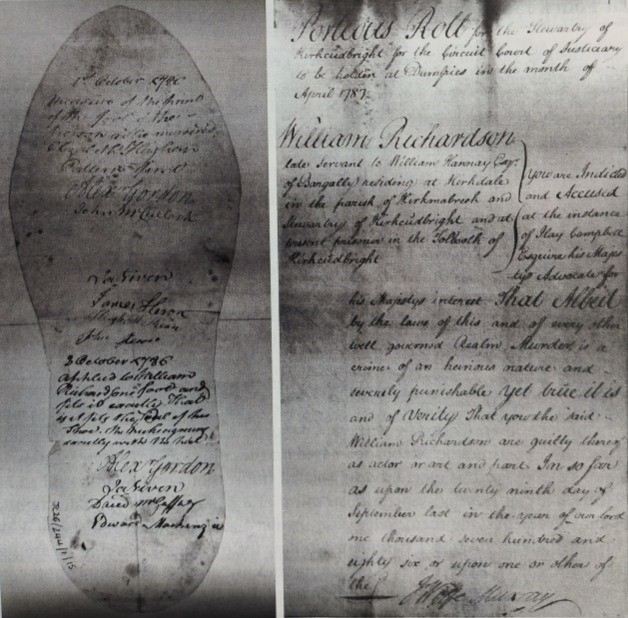 1st October 1786
Measure of the print
of the foot of the
person who murdered
Elizabeth Hughan
Alex Gordon
John McCulloch
Jo. Niven
James
John
3 October 1786
Applied to William
Richardsons foot and
fits it exactly That
is it fits the sole of his
Shoe. The
exactly with the heel
Alex Gordon
Jo. Niven
David McGaffey
Edward
JC26/244/1/15
Porteous Roll for the Stewartry of
Kirkcudbright for the Circuit Court of Justiciary
to be holden at Dumfries in the month of
April 1787.
William Richardson
late Servant to William Hannay Esqr.
of Bargally residing at Kirkdale
in the parish of Kirkmabreck and
Stewartry of Kirkcudbright and at
present prisoner in the Tolbooth of
Kirkcudbright
You are Indicted
and Accused
at the instance
of Ilay Campbell
Esquire his Majes
tys Advocate for
his Majestys interest That Albeit
by the laws of this and of every other
well governed Realm, Murder, is a
crime of an heinous nature and
severely punishable Yet true it is
and of Verity That you the said
William Richardson are guilty thereof
as actor or art and part. In so far
as upon the twenty ninth day of
September last in the year of our lord
one thousand seven hundred and
eighty six or upon one or other of
the
Murray